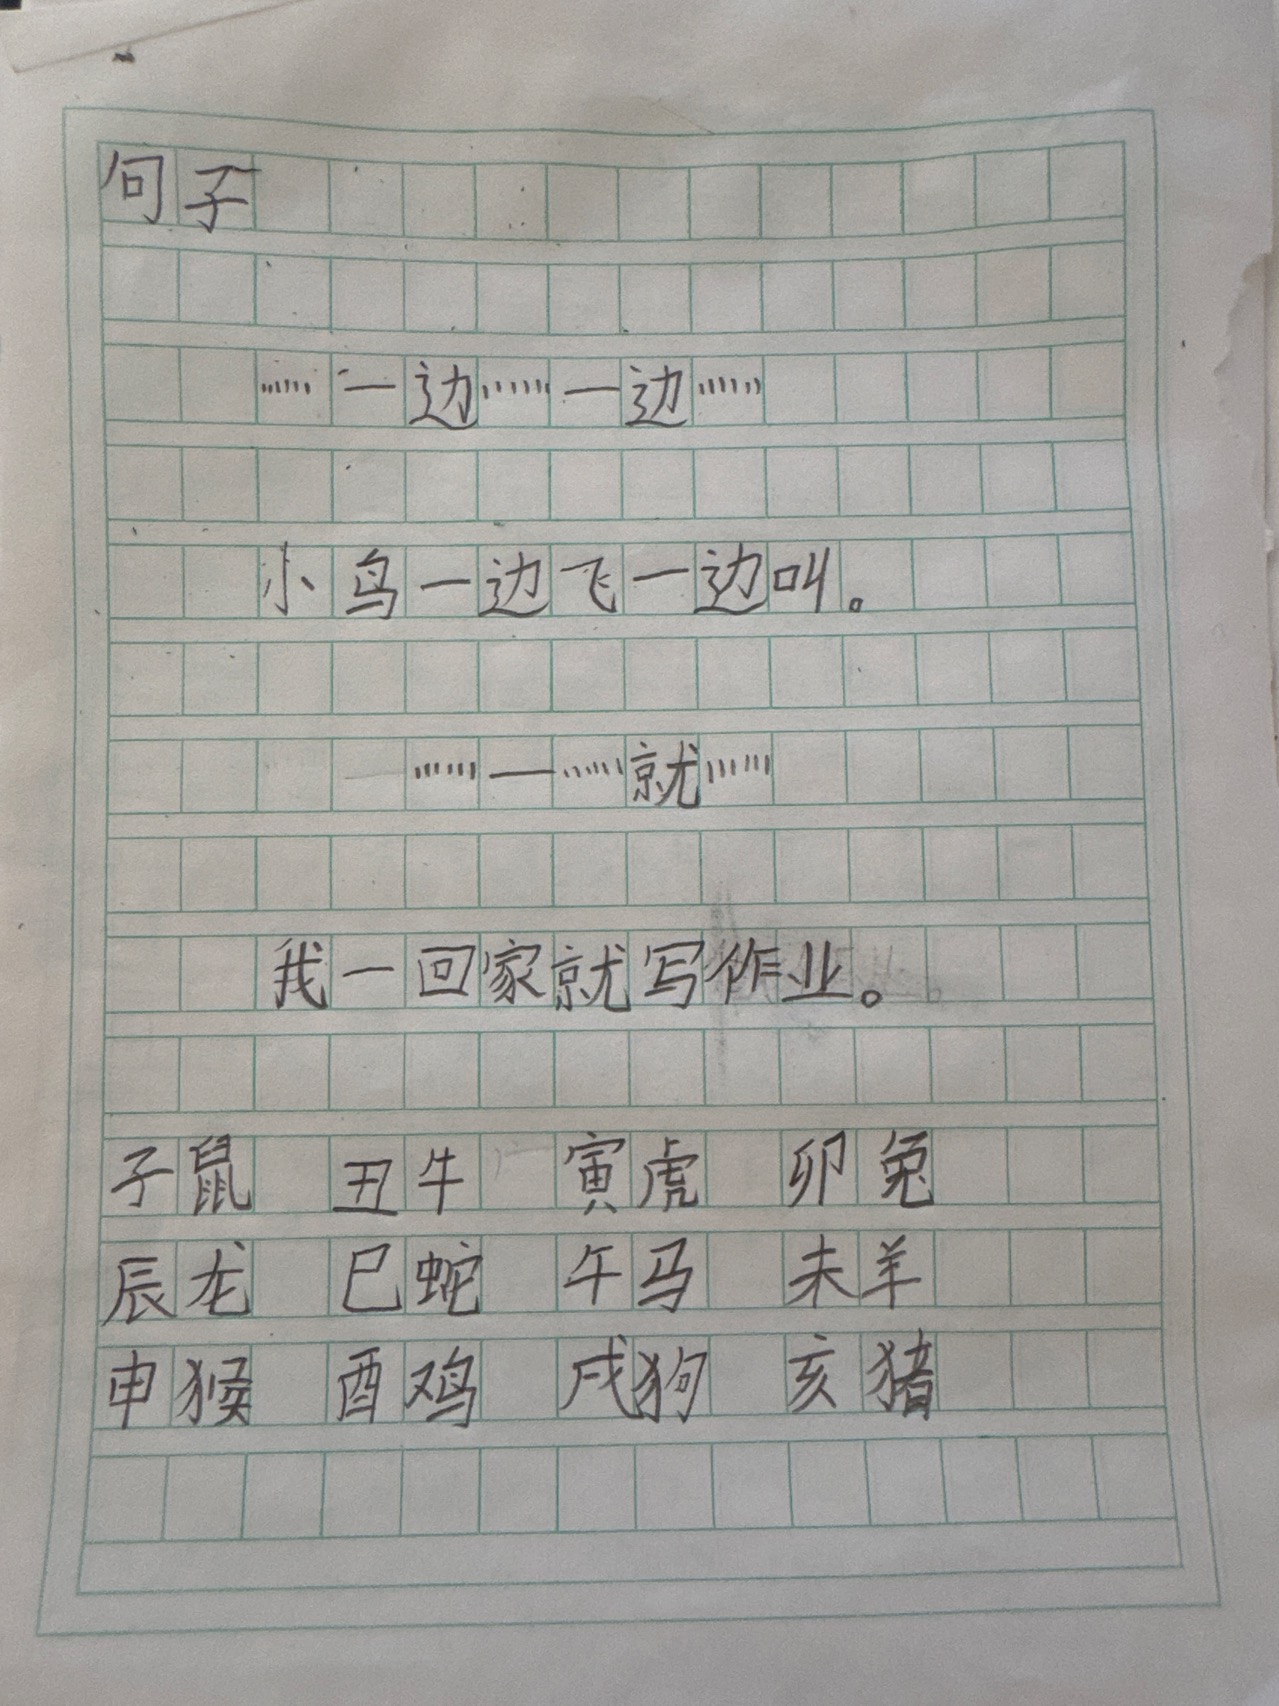 句子
……一边……一边……
小鸟一边飞一边叫。
……一……就……
我一回家就写作业。
子鼠 丑牛 寅虎 卯兔
辰龙 巳蛇 午马 未羊
申猴 酉鸡 戌狗 亥猪